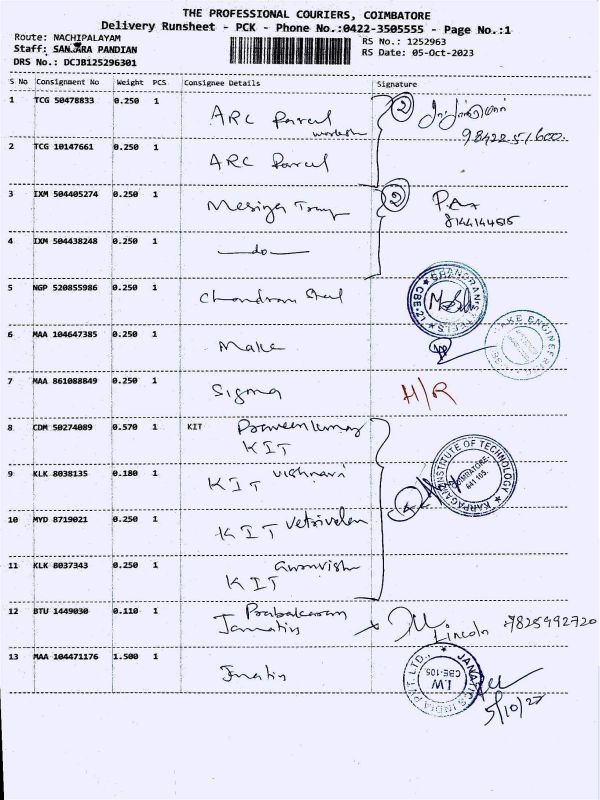 THE PROFESSIONAL COURIERS, COIMBATORE
Delivery Runsheet - PCK - Phone No.:0422-3505555 - Page No.:1
Route: NACHIPALAYAM
RS No.: 1252963
Staff: SANKARA PANDIAN
RS Date: 05-Oct-2023
DRS No.: DCJB125296301
S No Consignment No Weight PCS. Consignee Details Signature
1 TCG 50478833 0.250 1 ARC Parcel
98422 51600
2 TCG 10147661 0.250 1 ARC Parcel
3 IXM 504405274 0.250 1
8144144515
4 IXM 504438248 0.250 1 do
5 NGP 520855986 0.250 1 Chandran Steel
CBE-21
6 MAA 104647385 0.250 1 Make
MAKE ENGINEERING
7 MAA 861088849 0.250 1 Sigma H/R
8 CDM 50274089 0.570 1 KIT Praveenkumar
KIT
KARPAGAM INSTITUTE OF TECHNOLOGY
COIMBATORE-
641 105.
9 KLK 8038135 0.180 1 KIT Vishnavi
10 MYD 8719021 0.250 1 KIT Vetrivelan
11 KLK 8037343 0.250 1
KIT
12 BTU 1449030 0.110 1 Prabakaran
Janatis Lincoln 7825992720
13 MAA 104471176 1.500 1
JANATICS INDIA PVT. LTD.,
I.W
CBE-105
5/10/23